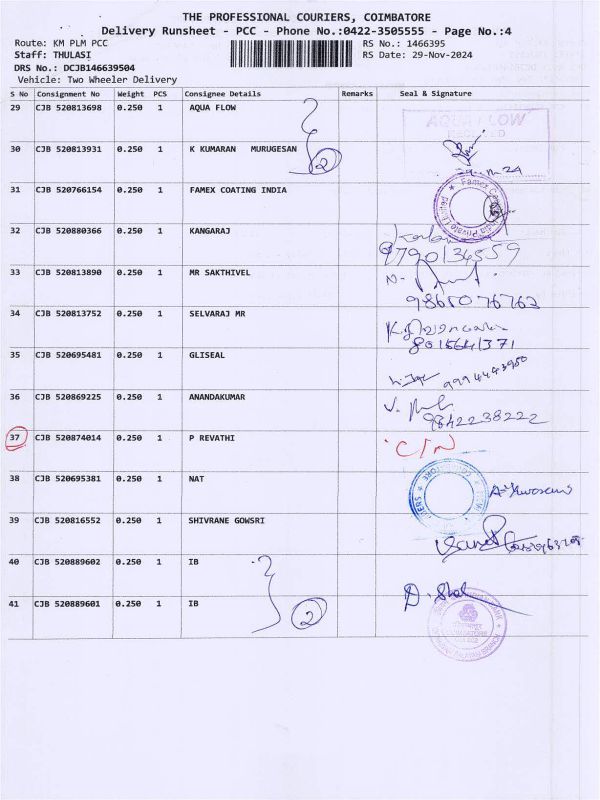 THE PROFESSIONAL COURIERS, COIMBATORE
Delivery Runsheet - PCC - Phone No.:0422-3505555 - Page No.:4
Route: KM PLM PCC RS No.: 1466395
Staff: THULASI RS Date: 29-Nov-2024
DRS No.: DCJB146639504
Vehicle: Two Wheeler Delivery
S No Consignment No Weight PCS Consignee Details Remarks Seal & Signature
29 CJB 520813698 0.250 1 AQUA FLOW
AQUA FLOW
30 CJB 520813931 0.250 1 K KUMARAN MURUGESAN 2
31 CJB 520766154 0.250 1 FAMEX COATING INDIA
32 CJB 520880366 0.250 1 KANGARAJ
9790134559
33 CJB 520813890 0.250 1 MR SAKTHIVEL
9865076762
34 CJB 520813752 0.250 1 SELVARAJ MR
8015641371
35 CJB 520695481 0.250 1 GLISEAL
9994443950
36 CJB 520869225 0.250 1 ANANDAKUMAR
9842238222
37 CJB 520874014 0.250 1 P REVATHI C/N
38 CJB 520695381 0.250 1 NAT
39 CJB 520816552 0.250 1 SHIVRANE GOWSRI
40 CJB 520889602 0.250 1 IB
41 CJB 520889601 0.250 1 IB 2
COIMBATORE